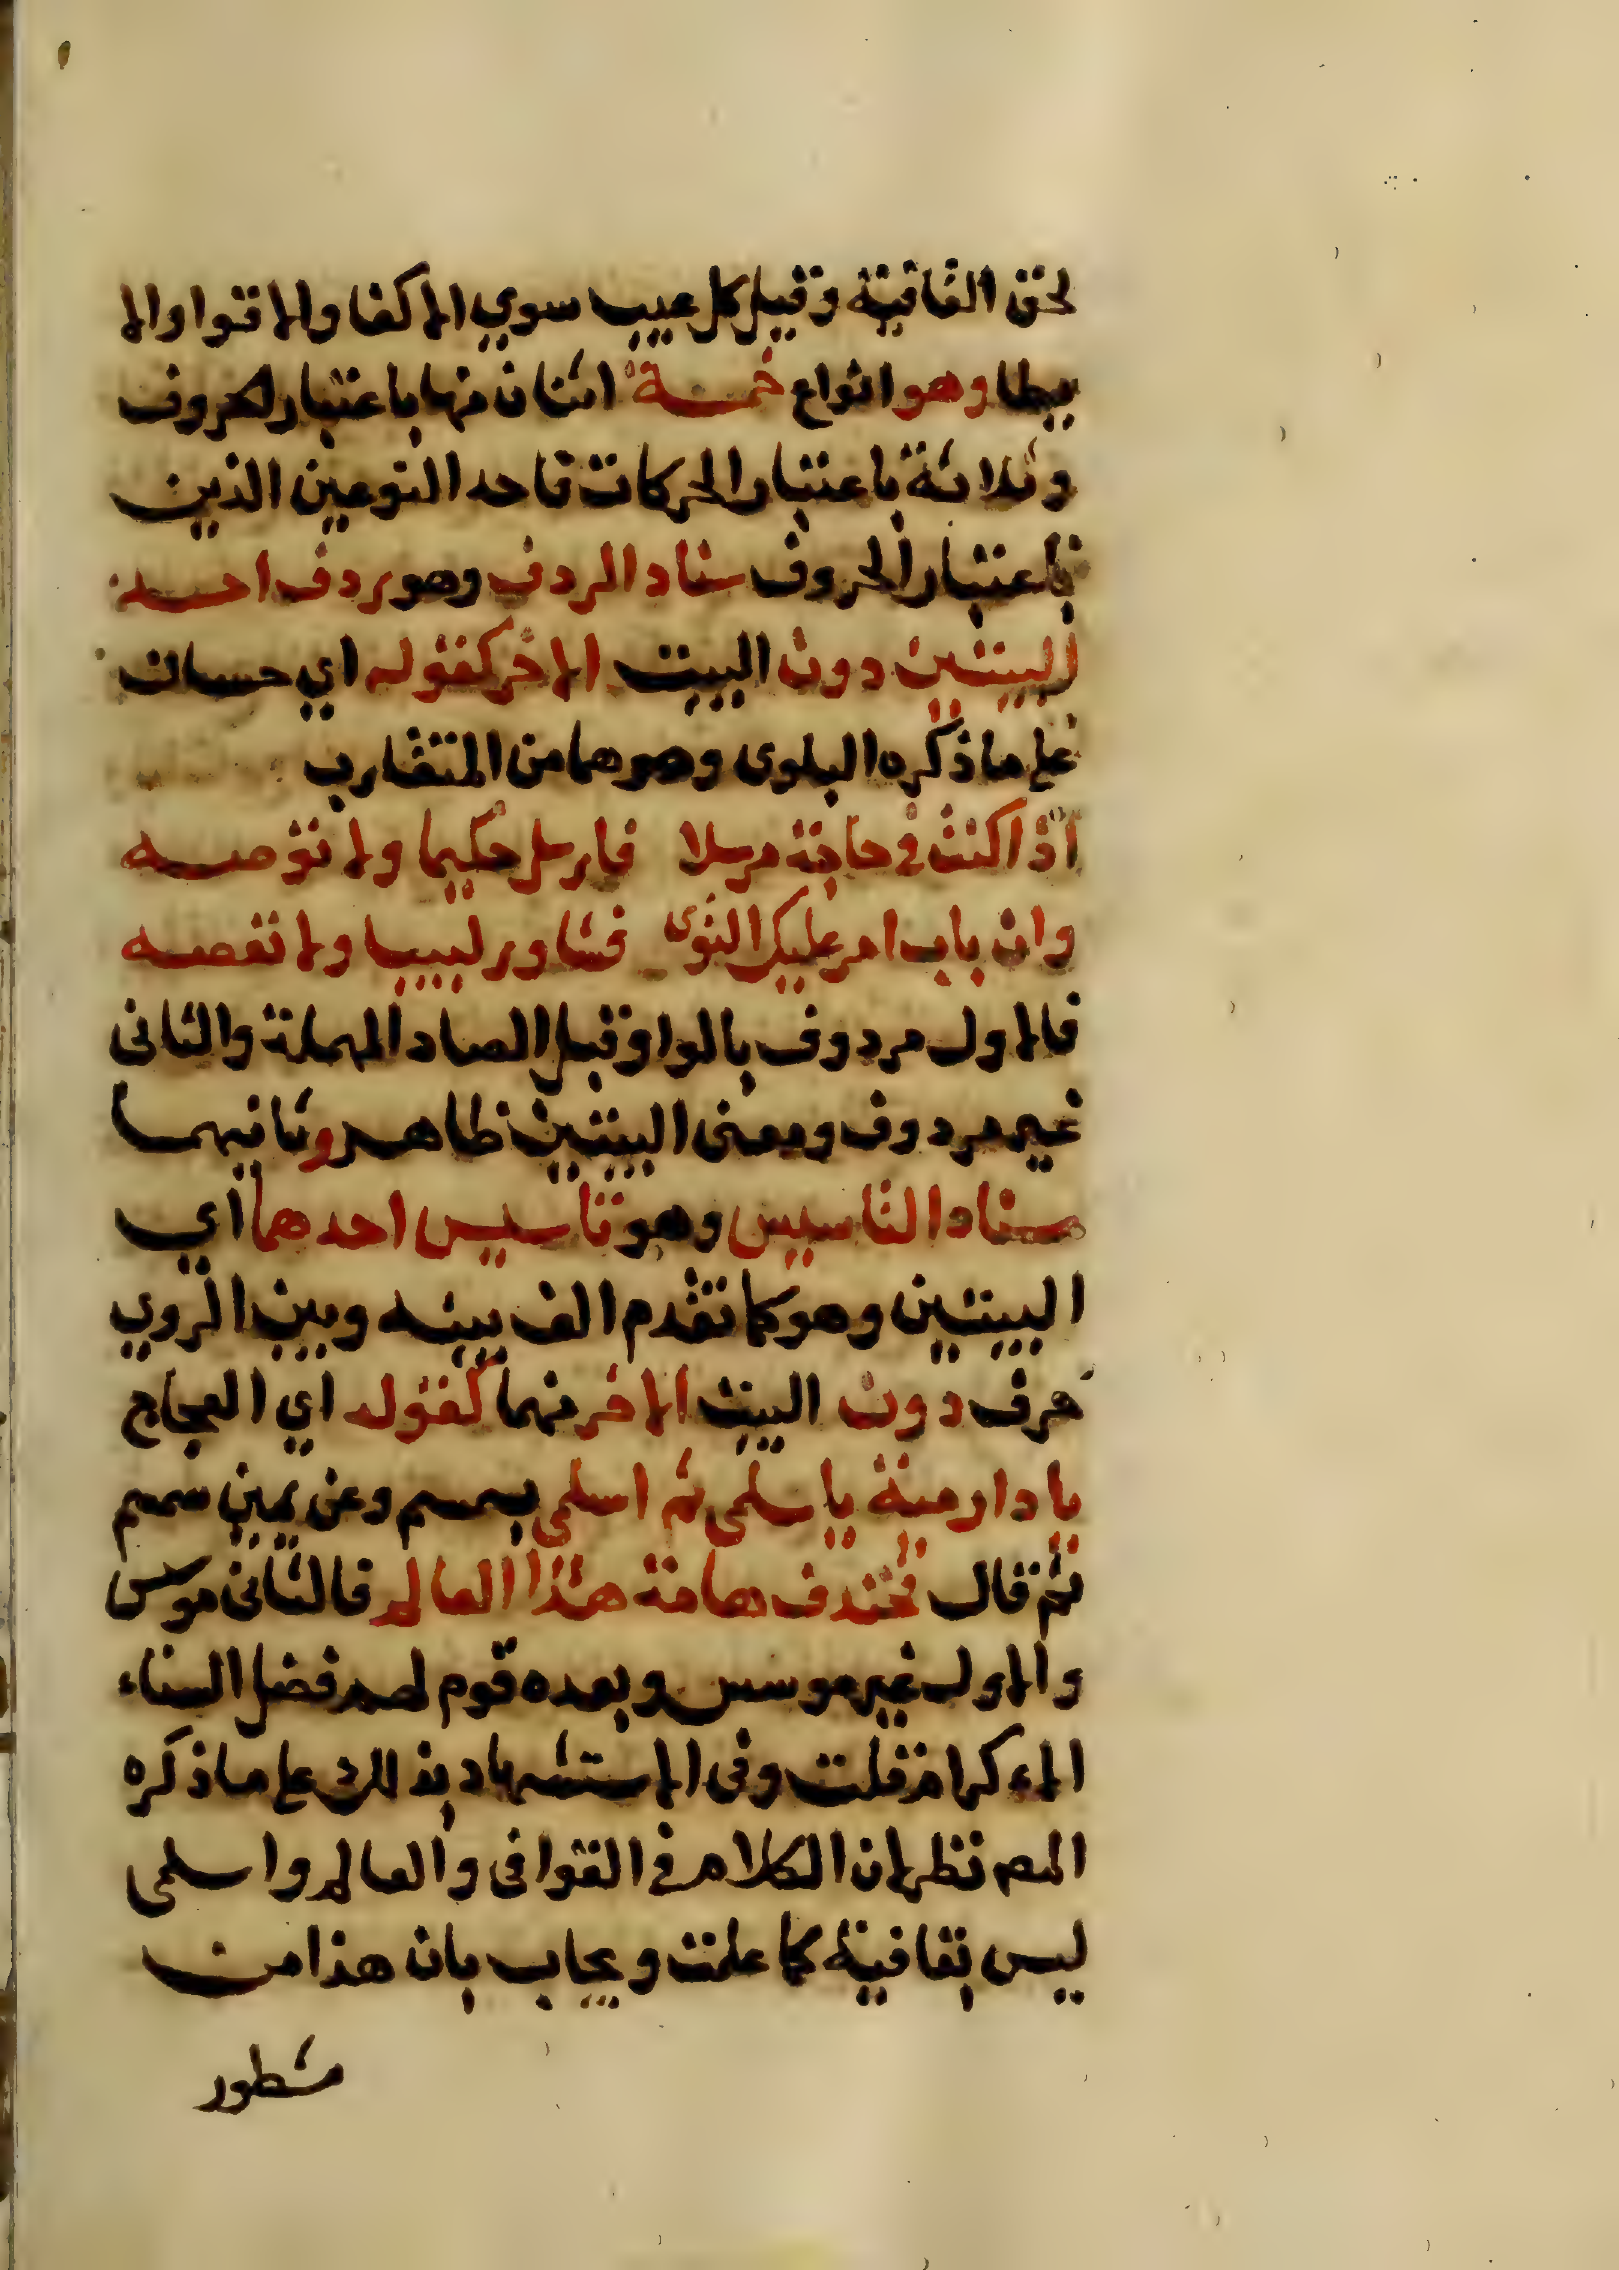 لحق القافية وقيل كل عيب سوي الاكفا والاقوا والا
يطا وهو انواع خمسة اثنان منها باعتبار الحروف
وثلاثة باعتبار الحركات فاحد النوعين الذين
باعتبار الحروف سناد الردف وهو ردف احد
البيتين دون البيت الاخر كقوله اي حسان
علي ما ذكره البلوى وهو هما من المتقارب
اذا كنت في حاجة مرسلا فارسل حكيما ولا توصه
وان باب امر عليك التوى فشاور لبيبا ولا تعصه
فالاول مردوف بالواو قبل الصاد المهملة والثانى
غير مردوف ومعنى البيتين ظاهر وثانيهما
سناد التاسيس وهو تاسيس احدهما اي
البيتين وهو كما تقدم الف بينه وبين الروي
حرف دون البيت الاخر منهما كقوله اي العجاج
يا دار مية يا سلمى ثم اسلمى بسمسم وعن يمين سمسم
ثم قال فخندف هامة هذا العالم فالثانى موسس
والاول غير موسس وبعده قوم لهم فضل السناء
الاكرام قلت وفى الاستشهاد بذلك علي ما ذكره
المص نظر لان الكلام في القوافى والعالم واسلمى
ليس بقافية كما علمت ويجاب بان هذا من
مشطور